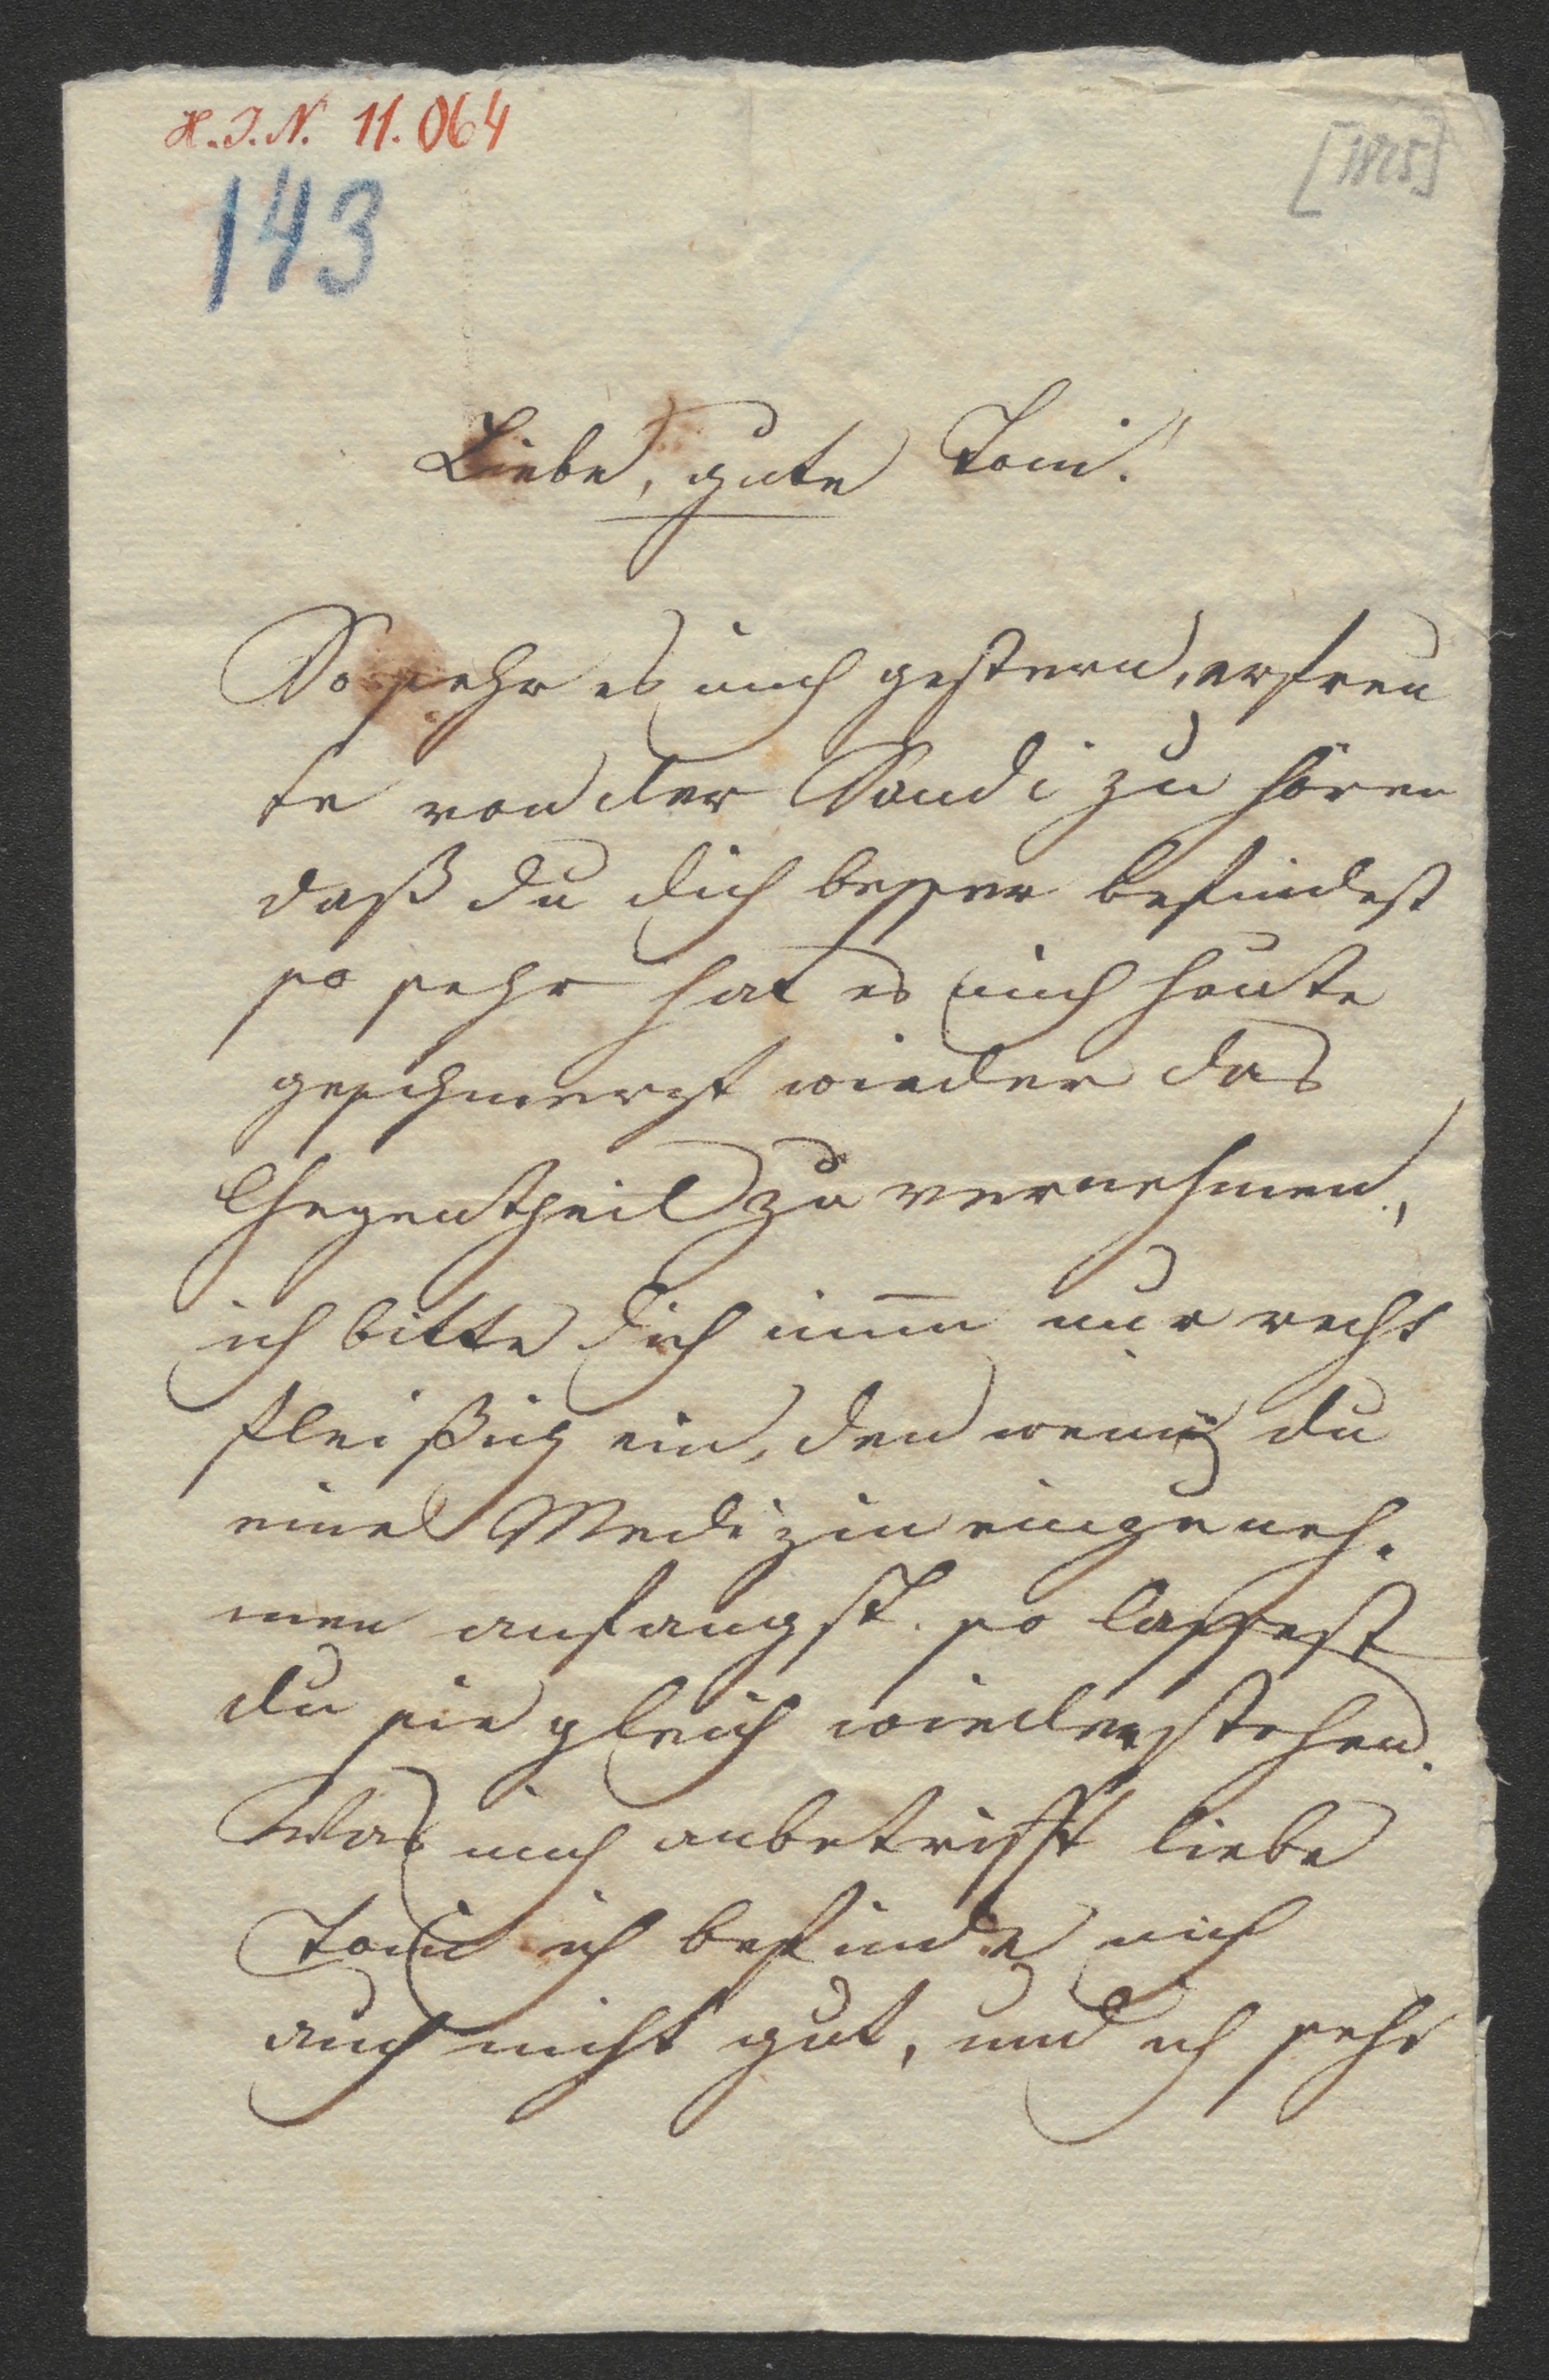 H.I.N. 11.064
[1825]
143
Liebe, gute Toni!
So sehr es mich gestern, erfreu
te von der Sandi zu hören
daß du dich besser befindest
so sehr hat es mich heute
geschmerzt wieder das
Gegentheil zu vernehmen,
ich bitte dich nim̄ nur recht
fleißig ein, den wenn du
eine Medizin einzuneh-
men anfangst. so lassest
du sie gleich wieder stehen.
Was mich anbetrifft liebe
Toni ich befinde mich
auch nicht gut, und ich sehr